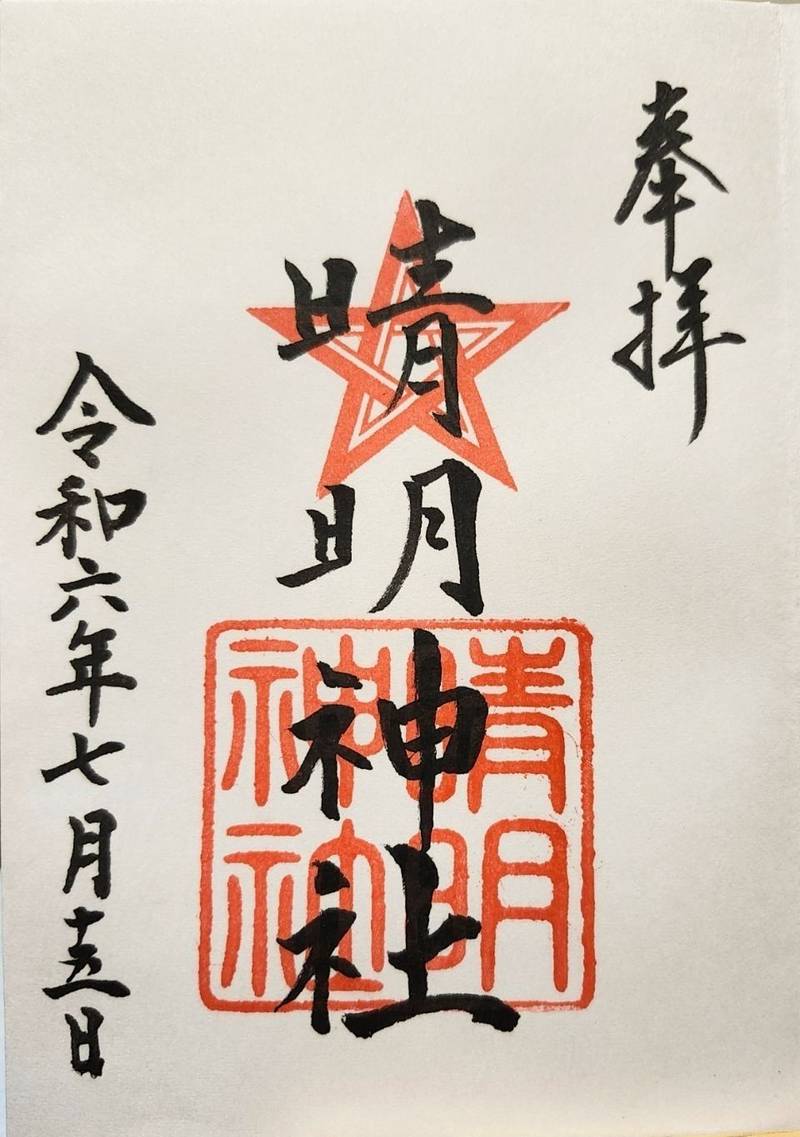 奉拝
晴明神社
晴明神社
令和六年七月十五日